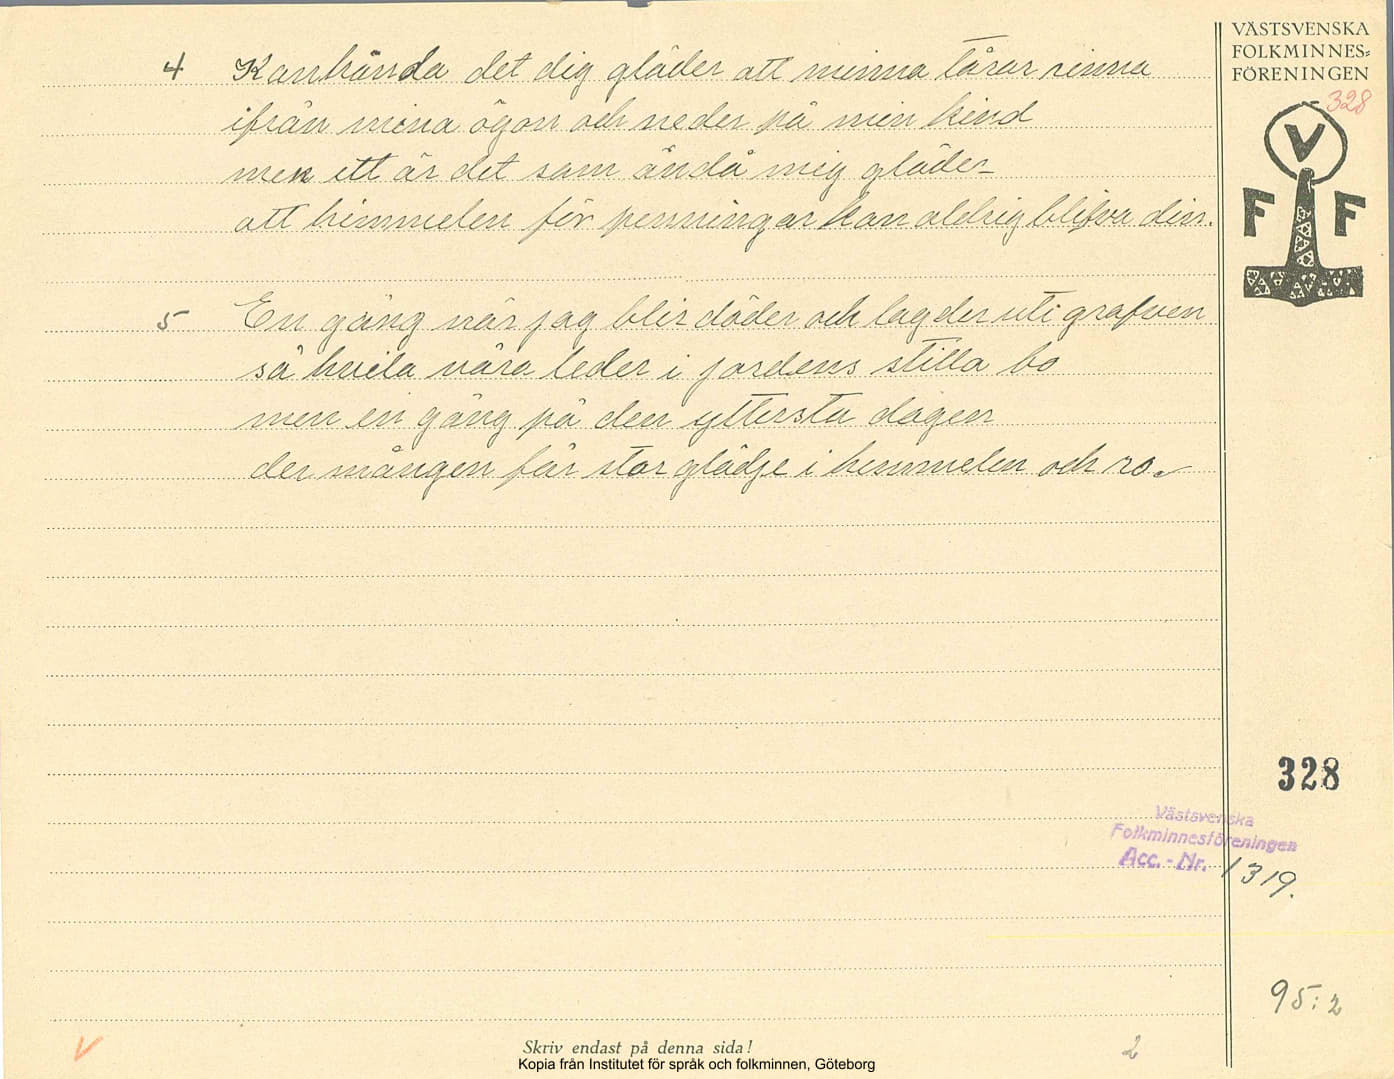 VÄSTSVENSKA
FOLKMINNES=
FÖRENINGEN
328
V
F F
4 Kanhända det dig gläder att minna tårar rinna
ifrån mina ögon och neder på min kind
men ett är det som ändå mig gläder
att himmelen för penningar kan aldrig blifva din.
5 En gång när jag blir döder och lagder uti grafven
så hvila våra leder i jordens stilla bo
men en gång på den yttersta dagen
der mången får stor glädje i himmelen och ro.
328
Västsvenska
Folkminnesföreningen
Acc.-Nr. 1319.
95:2
V
Skriv endast på denna sida!
2
Kopia från Institutet för språk och folkminnen, Göteborg